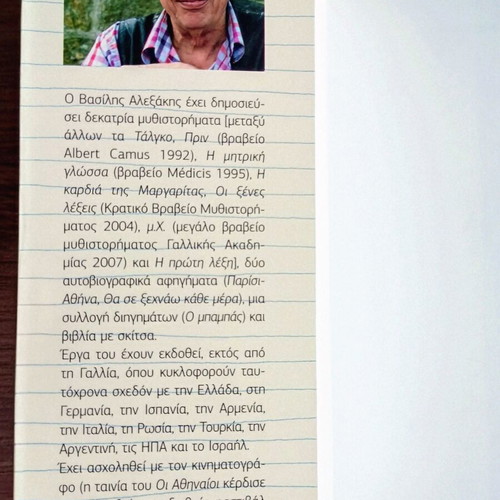 Ο Βασίλης Αλεξάκης έχει δημοσιεύ-
σει δεκατρία μυθιστορήματα [μεταξύ
άλλων τα Τάλγκο, Πριν (βραβείο
Albert Camus 1992), Η μητρική
γλώσσα (βραβείο Médicis 1995), Η
καρδιά της Μαργαρίτας, Οι ξένες
λέξεις (Κρατικό Βραβείο Μυθιστορή-
ματος 2004), μ.Χ. (μεγάλο βραβείο
μυθιστορήματος Γαλλικής Ακαδη-
μίας 2007) και Η πρώτη λέξη], δύο
αυτοβιογραφικά αφηγήματα (Παρίσι-
Αθήνα, Θα σε ξεχνάω κάθε μέρα), μια
συλλογή διηγημάτων (Ο μπαμπάς) και
βιβλία με σκίτσα.
Έργα του έχουν εκδοθεί, εκτός από
τη Γαλλία, όπου κυκλοφορούν ταυ-
τόχρονα σχεδόν με την Ελλάδα, στη
Γερμανία, την Ισπανία, την Αρμενία,
την Ιταλία, τη Ρωσία, την Τουρκία, την
Αργεντινή, τις ΗΠΑ και το Ισραήλ.
Έχει ασχοληθεί με τον κινηματογρά-
φο (η ταινία του Οι Αθηναίοι κέρδισε